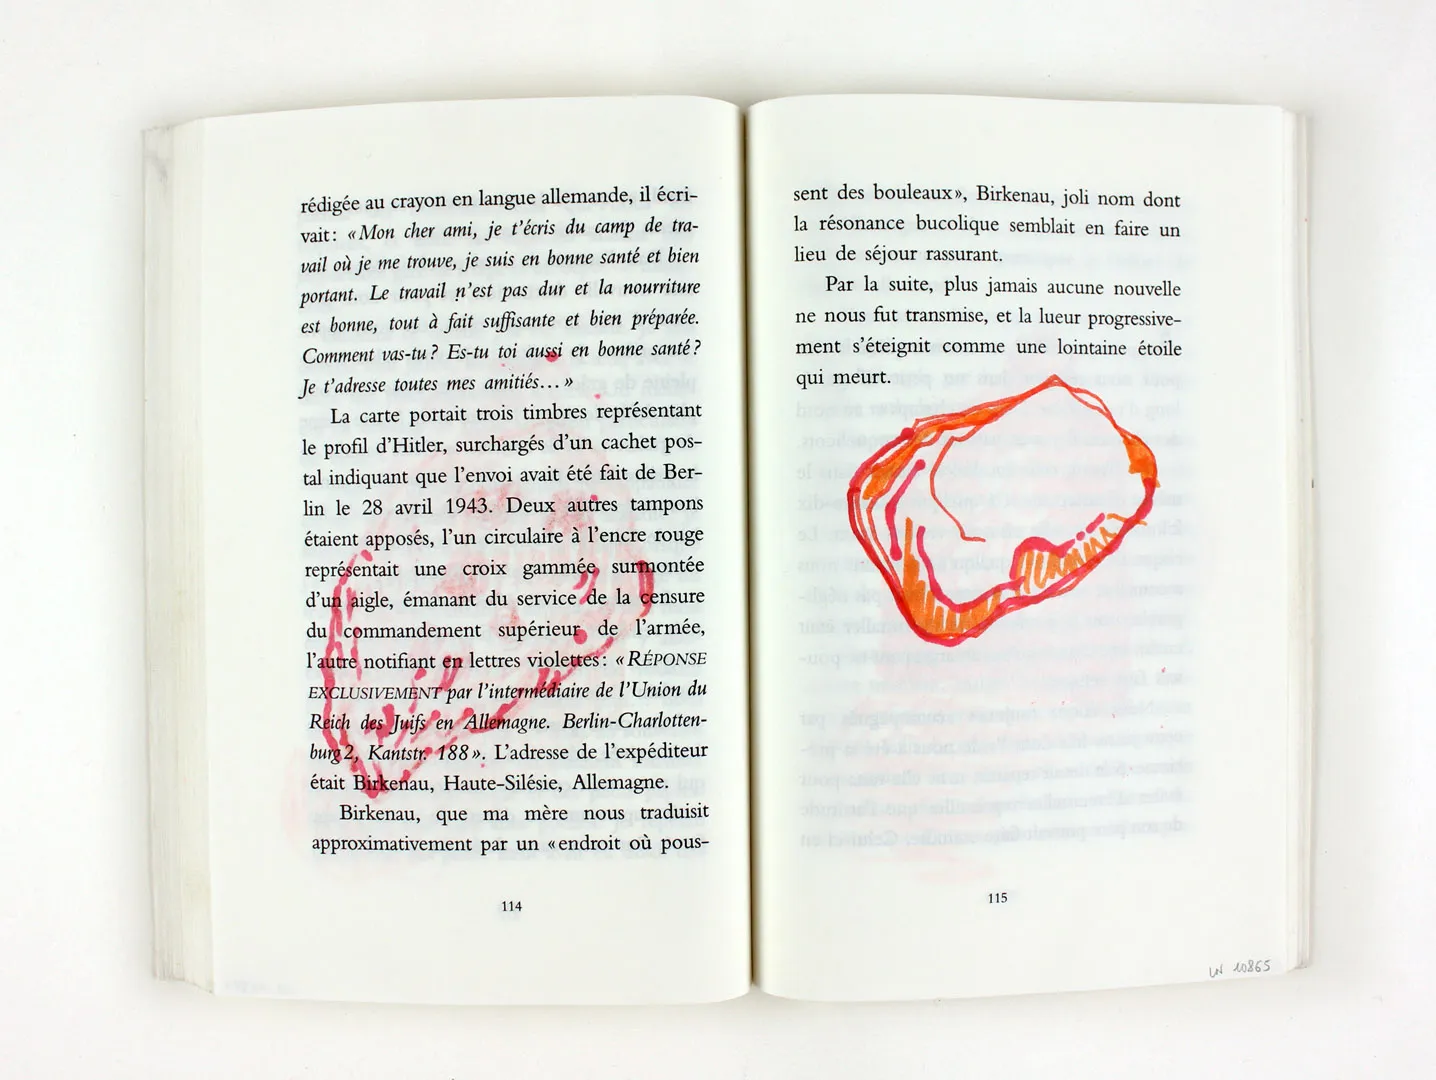 rédigée au crayon en langue allemande, il écri-
vait : « Mon cher ami, je t'écris du camp de tra-
vail où je me trouve, je suis en bonne santé et bien
portant. Le travail n'est pas dur et la nourriture
est bonne, tout à fait suffisante et bien préparée.
Comment vas-tu ? Es-tu toi aussi en bonne santé ?
Je t'adresse toutes mes amitiés... »
La carte portait trois timbres représentant
le profil d'Hitler, surchargés d'un cachet pos-
tal indiquant que l'envoi avait été fait de Ber-
lin le 28 avril 1943. Deux autres tampons
étaient apposés, l'un circulaire à l'encre rouge
représentait une croix gammée surmontée
d'un aigle, émanant du service de la censure
du commandement supérieur de l'armée,
l'autre notifiant en lettres violettes : « RÉPONSE
EXCLUSIVEMENT par l'intermédiaire de l'Union du
Reich des Juifs en Allemagne. Berlin-Charlotten-
burg 2, Kantstr. 188 ». L'adresse de l'expéditeur
était Birkenau, Haute-Silésie, Allemagne.
Birkenau, que ma mère nous traduisit
approximativement par un « endroit où pous-
114
sent des bouleaux », Birkenau, joli nom dont
la résonance bucolique semblait en faire un
lieu de séjour rassurant.
Par la suite, plus jamais aucune nouvelle
ne nous fut transmise, et la lueur progressive-
ment s'éteignit comme une lointaine étoile
qui meurt.
115
LN 10865